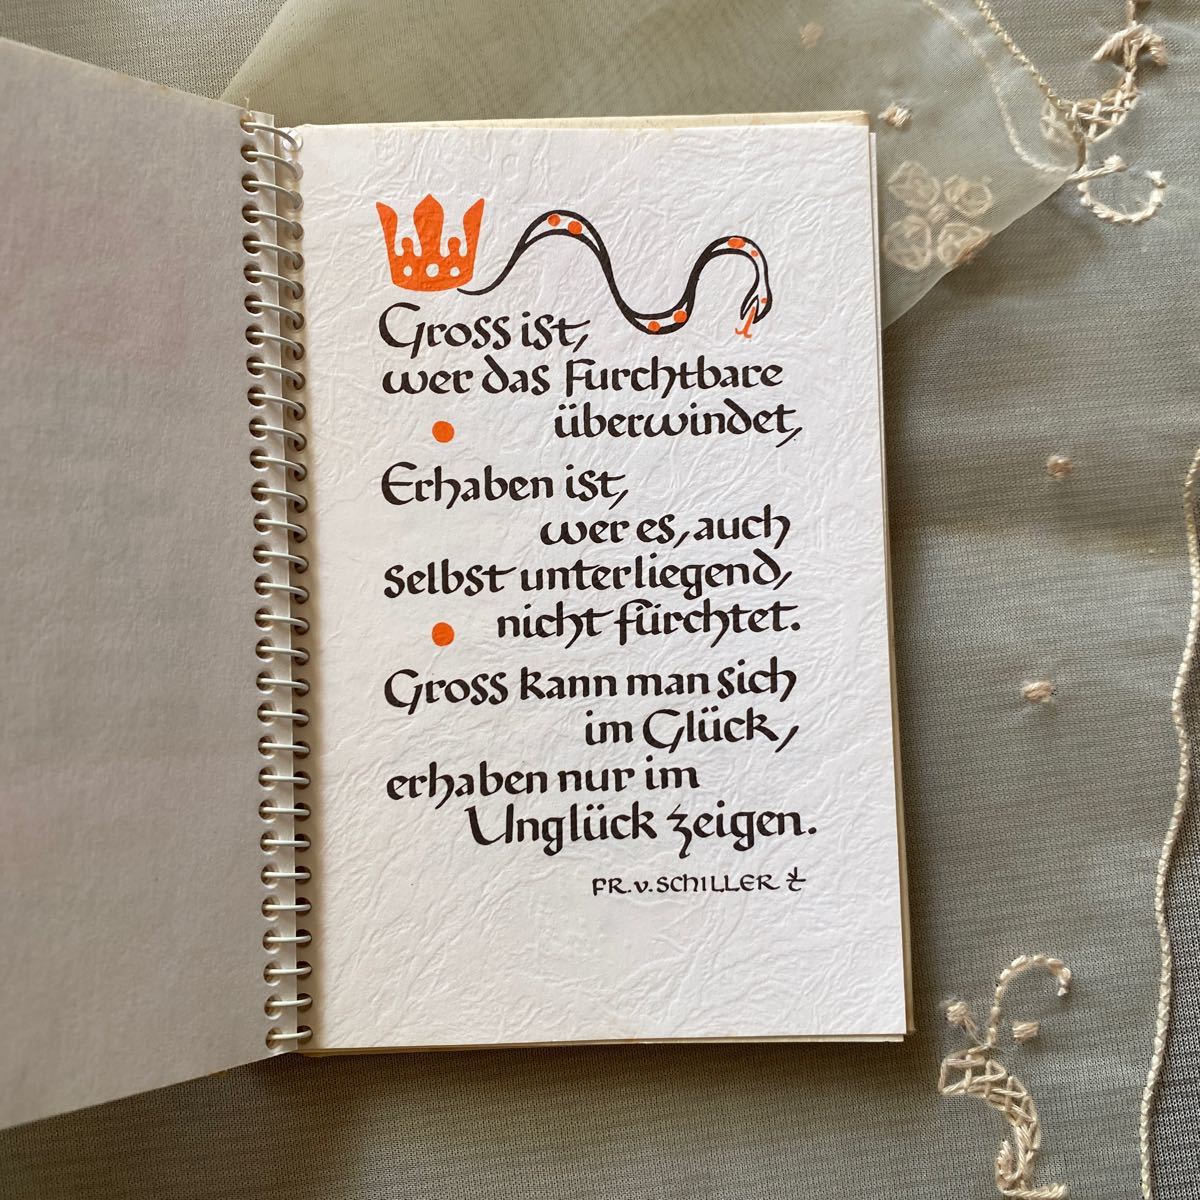 Gross ist,
wer das Furchtbare
überwindet,
Erhaben ist,
wer es, auch
selbst unterliegend,
nicht fürchtet.
Gross kann man sich
im Glück,
erhaben nur im
Unglück zeigen.
FR. v. SCHILLER